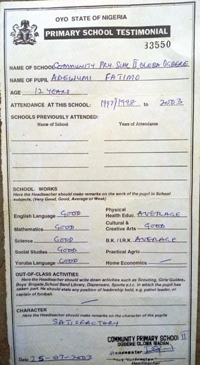 OYO STATE OF NIGERIA
PRIMARY SCHOOL TESTIMONIAL
33550
NAME OF SCHOOL COMMUNITY PRY. SCH. II OLOBA OGBERE
NAME OF PUPIL ADEWUMI FATIMO
AGE 12 YEARS
ATTENDANCE AT THIS SCHOOL: 1997/1998 to 2003
SCHOOLS PREVIOUSLY ATTENDED:
Name of School Years of Attendance
SCHOOL WORKS
Here the Headteacher should make remarks on the work of the pupil in School subjects, (Very Good, Good, Average or Weak)
English Language GOOD Physical Health Educ. AVERAGE
Mathematics GOOD Cultural & Creative Arts GOOD
Science GOOD B.K/IRK AVERAGE
Social Studies GOOD Practical Agric
Yoruba Language GOOD Home Economics
OUT-OF-CLASS ACTIVITIES
Here the Headteacher should write down activities such as Scouting, Girls Guides, Boys Brigade, School Band Library, Dispensary, Sports e.t.c. in which the pupil has taken part. He should state any position of leadership held, e.g. patrol leader, or captain of football
CHARACTER
Here the Headteacher should make remarks on the character of the pupil
SATISFACTORY
COMMUNITY PRIMARY SCHOOL II
OGBERE OLOBA IBADAN
Date 25-07-2003 Headmaster